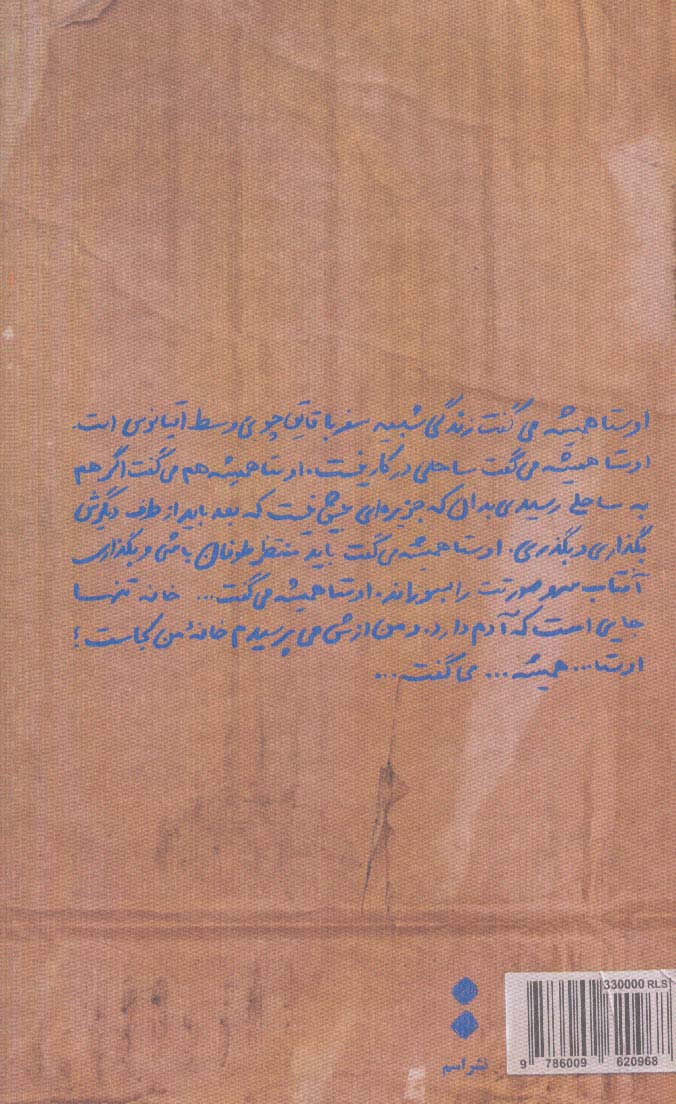 اوستا همیشه می گفت زندگی شبیه سفر با قایق چوبی وسط اقیانوس است.
اوستا همیشه می گفت ساحلی در کار نیست. اوستا همیشه هم می گفت اگر هم
به ساحلی رسیدی بدان که جزیره‌ای بیش نیست که بعد باید از طرف دیگرش
بگذاری و بگذری. اوستا همیشه می گفت باید منتظر طوفان باشی و بگذاری
آفتاب صورتت را بسوزاند. اوستا همیشه می گفت... خانه تنها
جایی است که آدم دارد. و من ازش می پرسیدم خانهٔ من کجاست؟
اوستا... همیشه... می گفت...
330000 RLS
نشر اسم
9 786009 620968